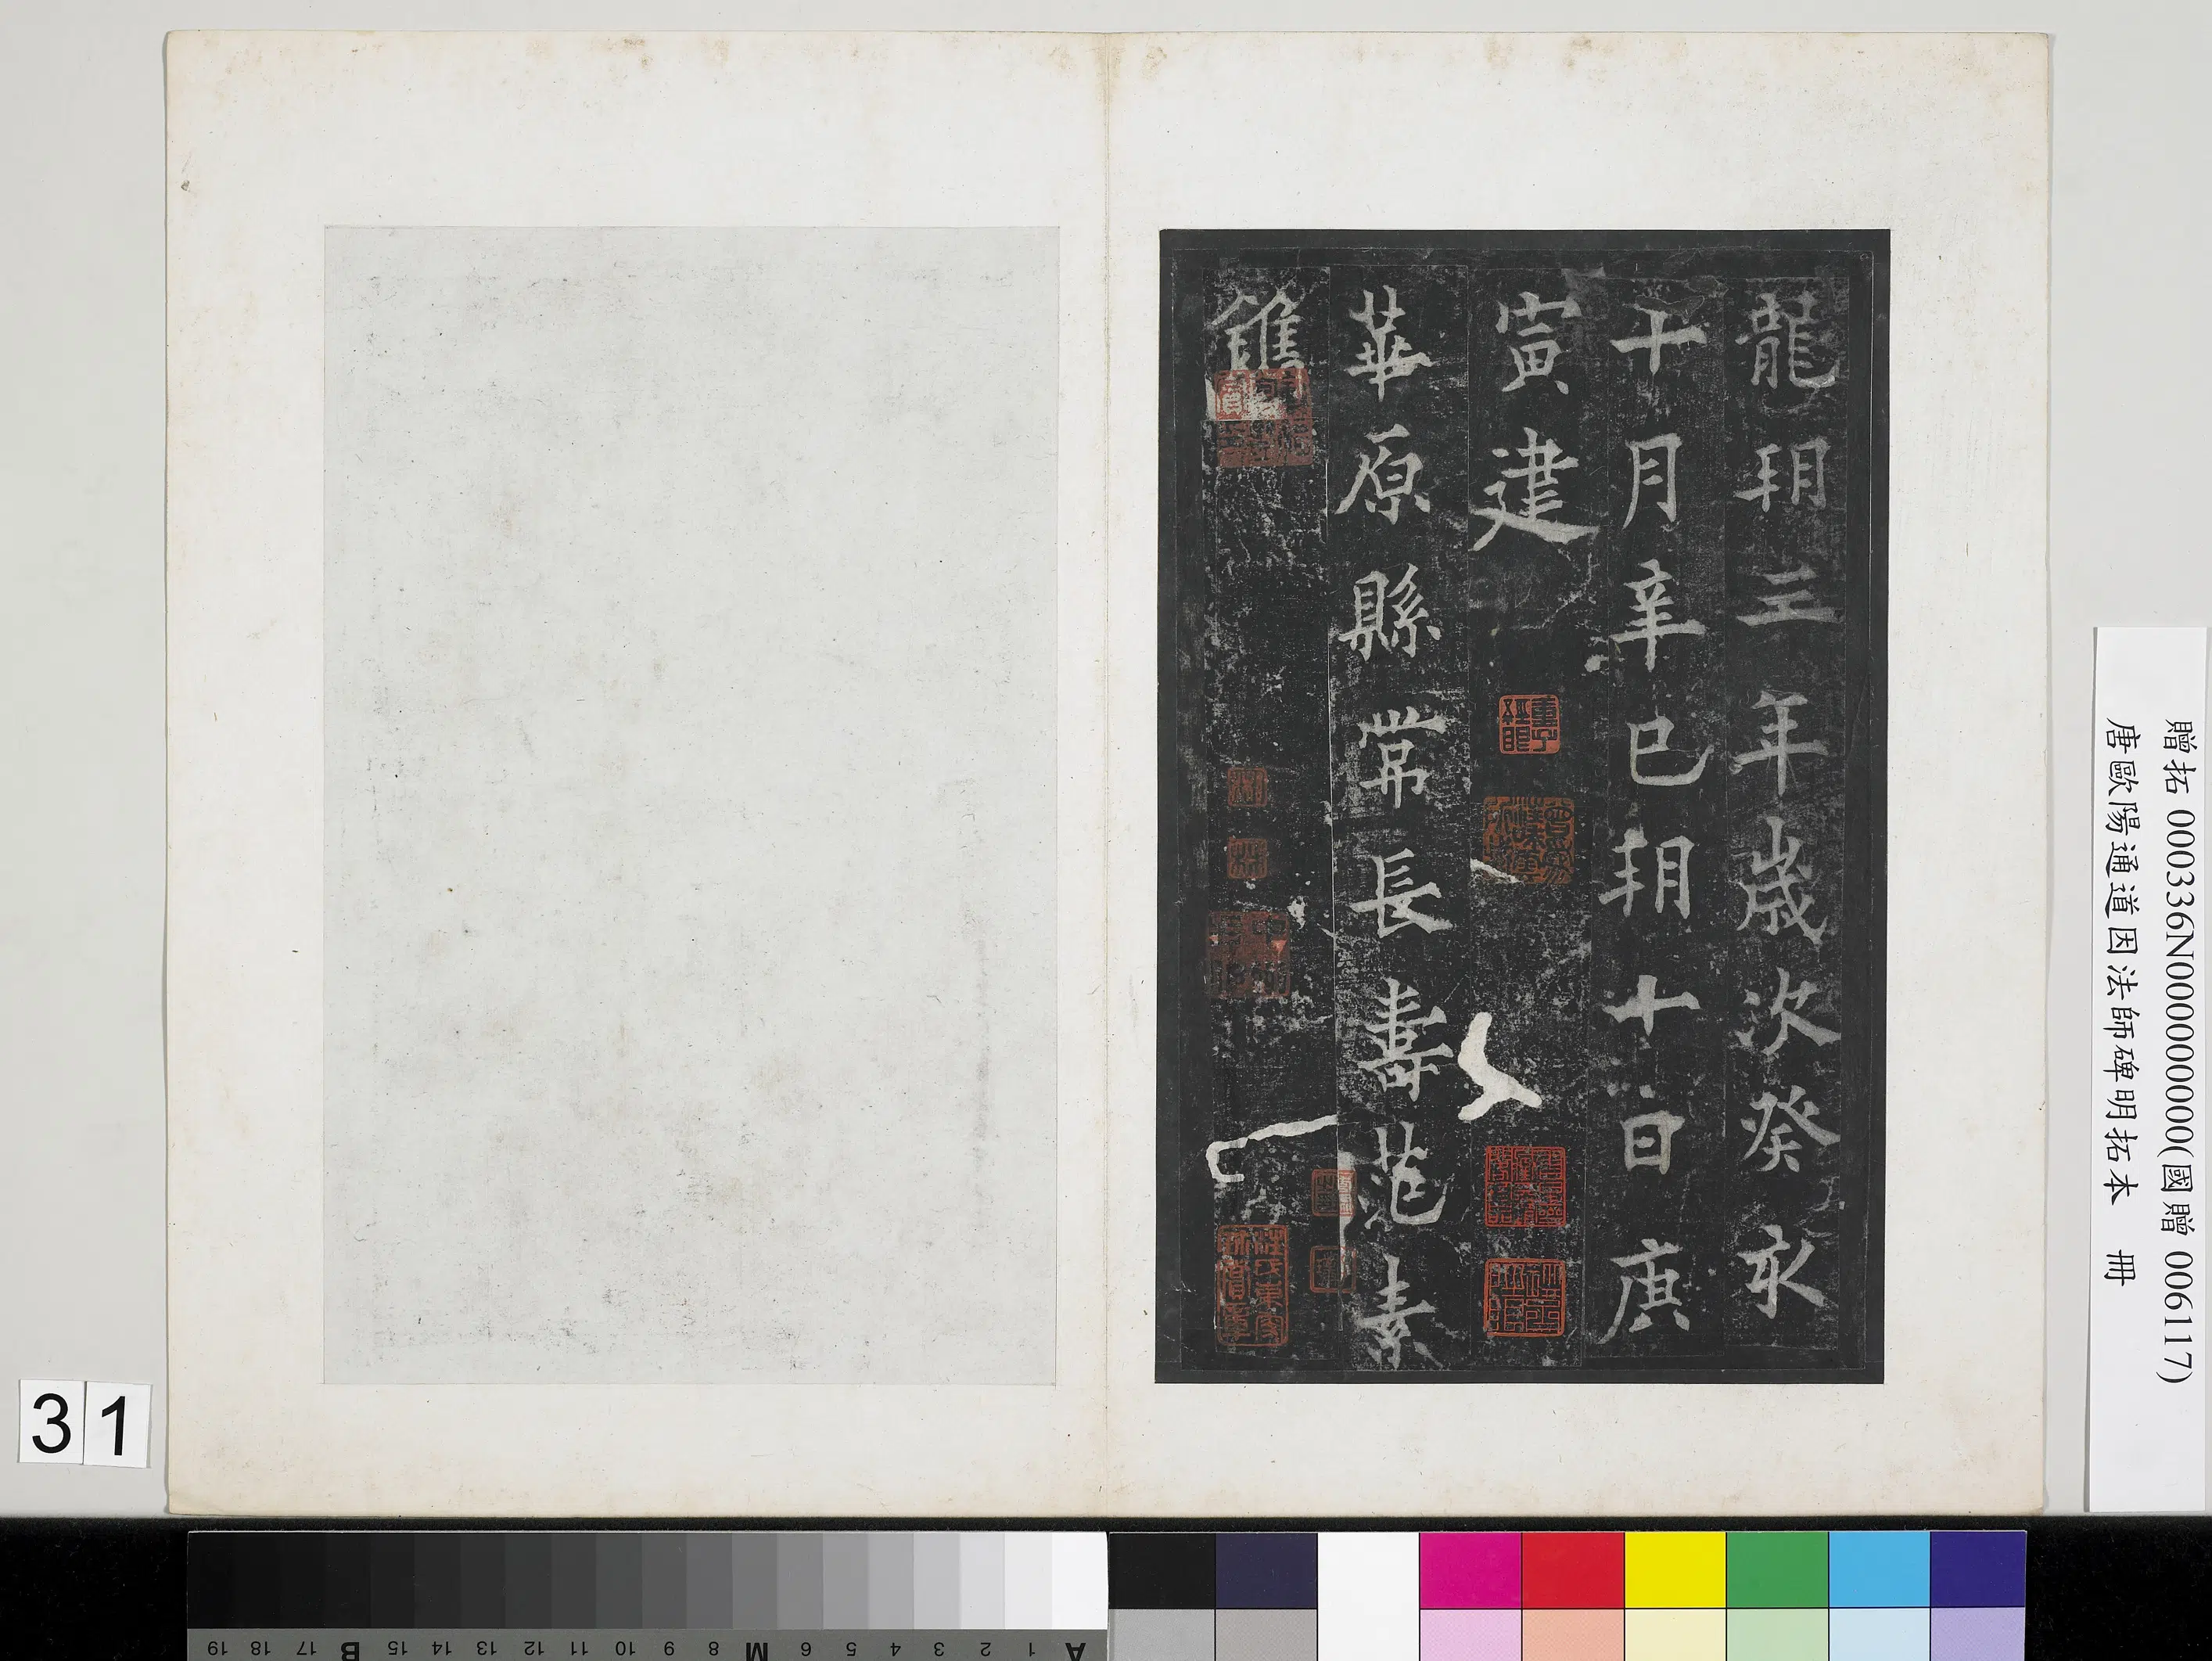 龍朔三年歲次癸亥
十月辛巳朔十日庚
寅建
華原縣常長壽范素
鐫
贈拓 000336N000000000(國贈 006117)
唐歐陽通道因法師碑明拓本 冊
31
A 1 2 3 4 5 6 M 8 9 10 11 12 13 14 15 B 17 18 19